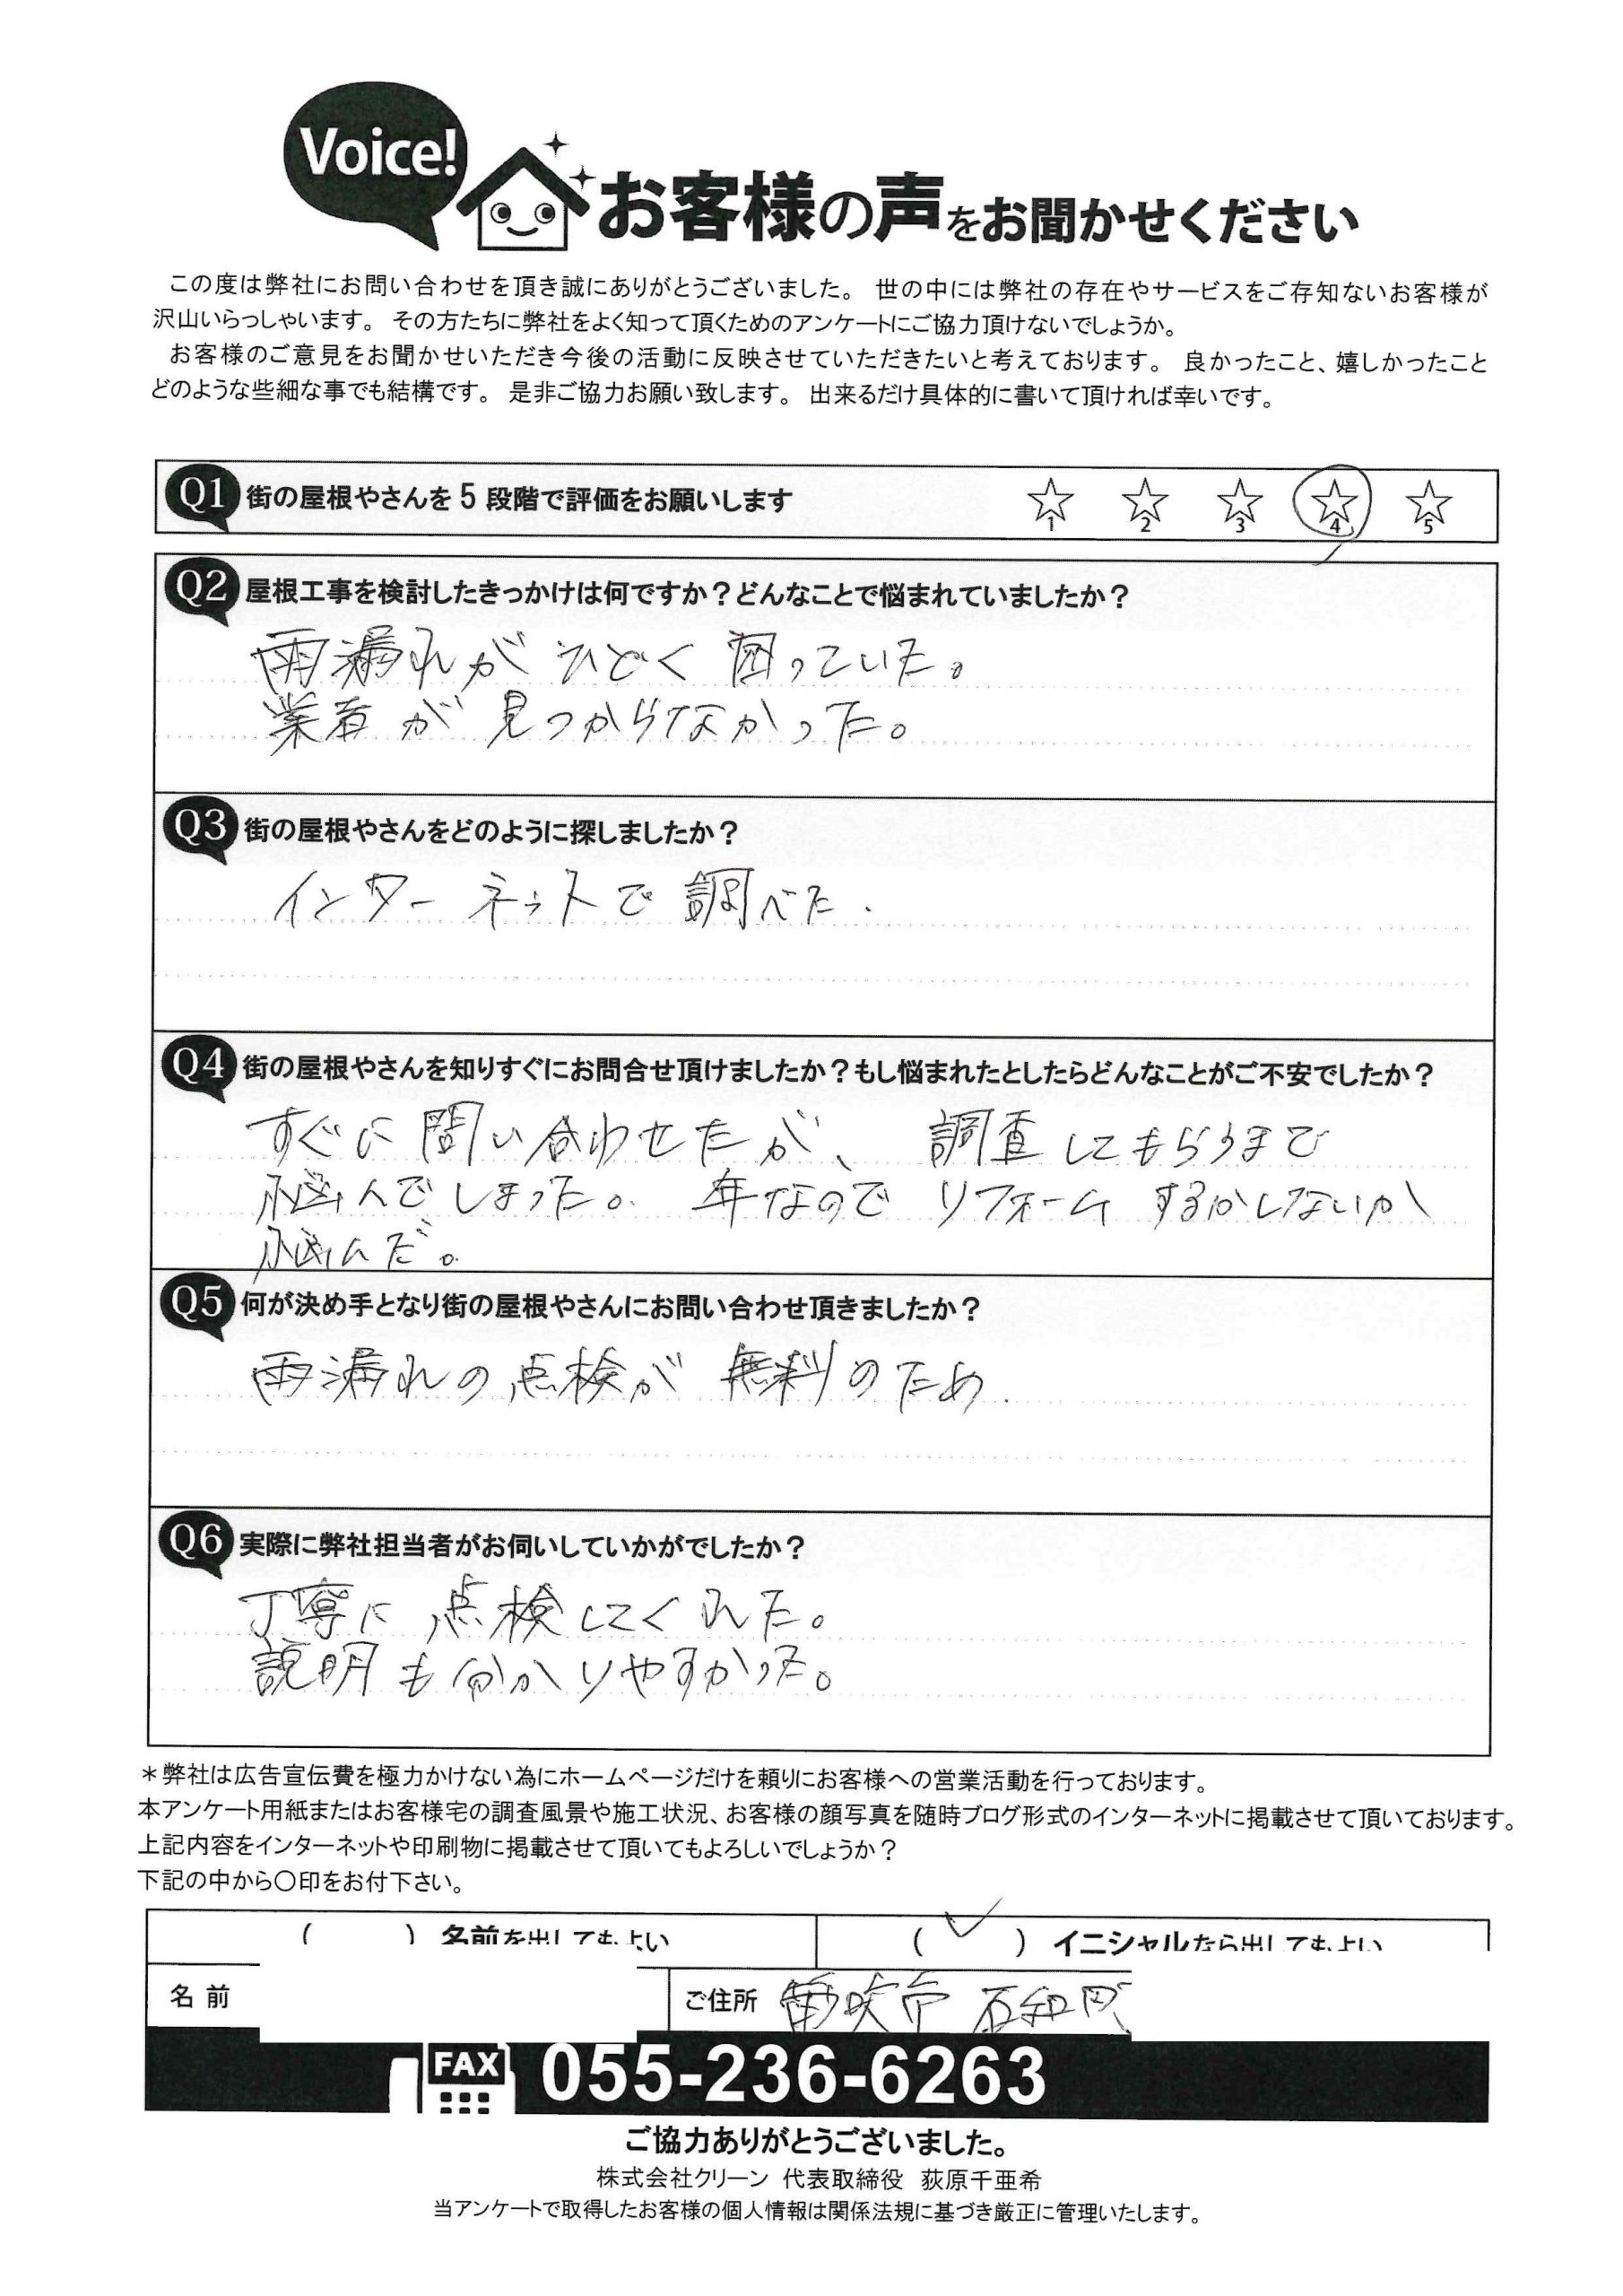 Voice!
お客様の声をお聞かせください
この度は弊社にお問い合わせを頂き誠にありがとうございました。 世の中には弊社の存在やサービスをご存知ないお客様が
沢山いらっしゃいます。 その方たちに弊社をよく知って頂くためのアンケートにご協力頂けないでしょうか。
お客様のご意見をお聞かせいただき今後の活動に反映させていただきたいと考えております。 良かったこと、嬉しかったこと
どのような些細な事でも結構です。 是非ご協力お願い致します。 出来るだけ具体的に書いて頂ければ幸いです。
Q1 街の屋根やさんを5段階で評価をお願いします ☆1 ☆2 ☆3 ☆4 ☆5
Q2 屋根工事を検討したきっかけは何ですか？どんなことで悩まれていましたか？
雨漏れがひどく困っていた。
業者が見つからなかった。
Q3 街の屋根やさんをどのように探しましたか？
インターネットで調べた.
Q4 街の屋根やさんを知りすぐにお問合せ頂けましたか？もし悩まれたとしたらどんなことがご不安でしたか？
すぐに問い合わせたが、調査してもらうまで
悩んでしまった。年なのでリフォームするかしないか
悩んだ。
Q5 何が決め手となり街の屋根やさんにお問い合わせ頂きましたか？
雨漏れの点検が無料のため.
Q6 実際に弊社担当者がお伺いしていかがでしたか？
丁寧に点検してくれた。
説明も分かりやすかった。
＊弊社は広告宣伝費を極力かけない為にホームページだけを頼りにお客様への営業活動を行っております。
本アンケート用紙またはお客様宅の調査風景や施工状況、お客様の顔写真を随時ブログ形式のインターネットに掲載させて頂いております。
上記内容をインターネットや印刷物に掲載させて頂いてもよろしいでしょうか？
下記の中から〇印をお付下さい。
( ) 名前を出してもよい (✓) イニシャルなら出してもよい
名前 ご住所 笛吹市 石和町
FAX 055-236-6263
ご協力ありがとうございました。
株式会社クリーン 代表取締役 荻原千亜希
当アンケートで取得したお客様の個人情報は関係法規に基づき厳正に管理いたします。